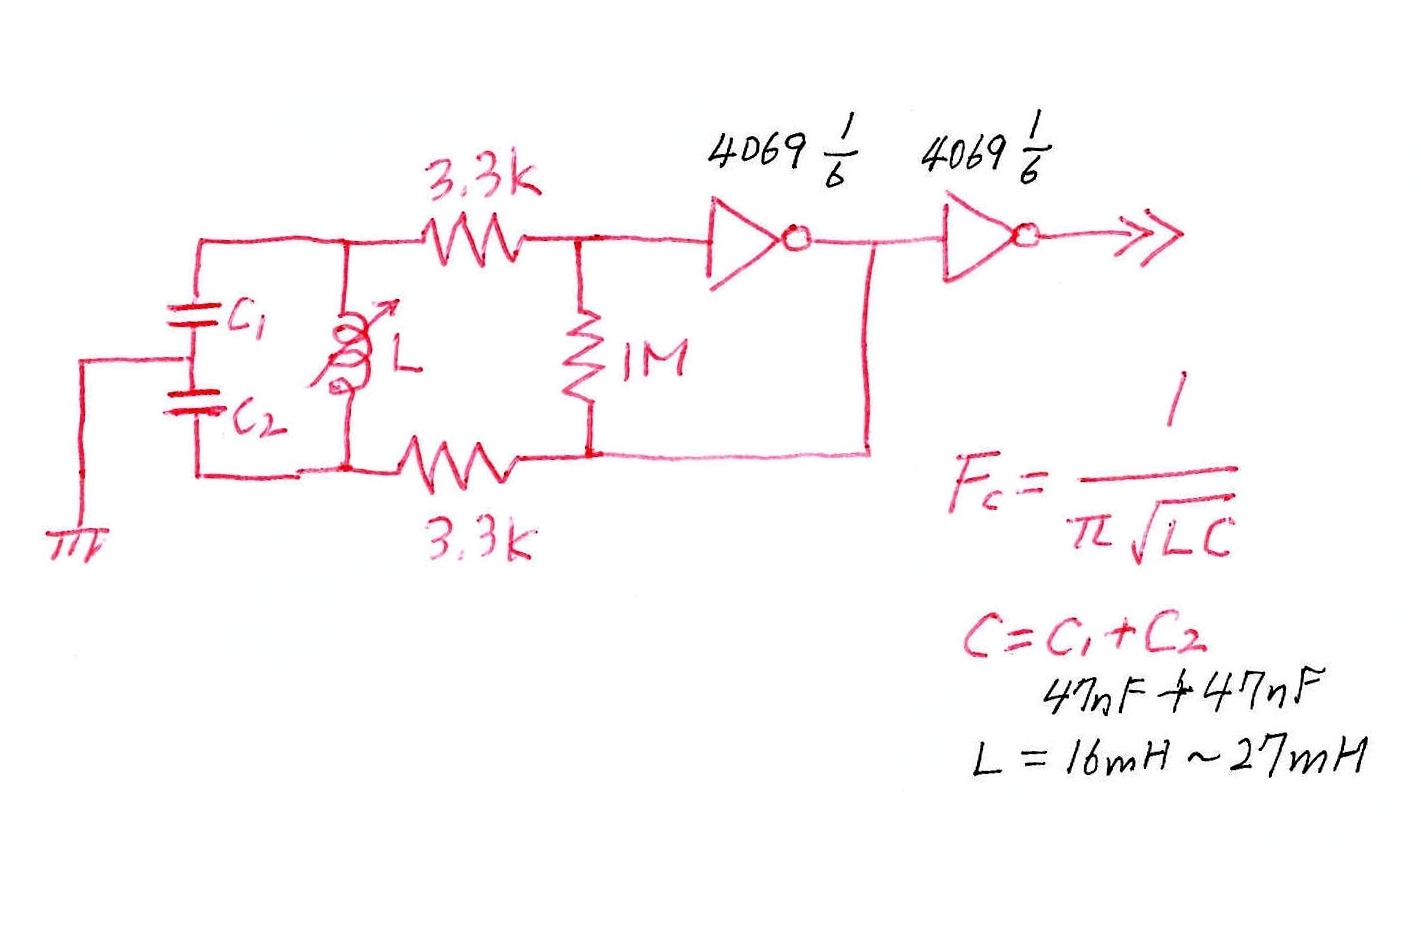 4069 1/6
4069 1/6
3.3k
C1
L
1M
C2
3.3k
Fc = 1/π√LC
C = C1 + C2
47nF + 47nF
L = 16mH ~ 27mH